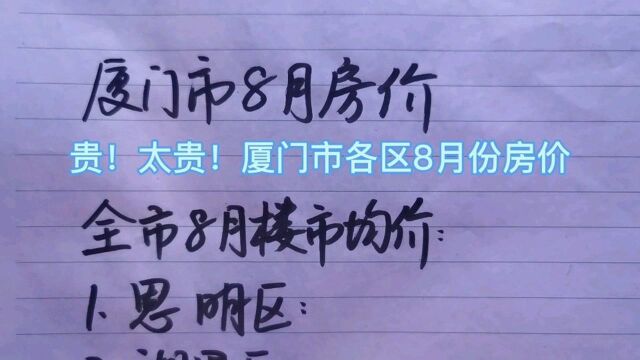 厦门市8月房价
贵！太贵！厦门市各区8月份房价
全市8月楼市均价：
1、思明区：